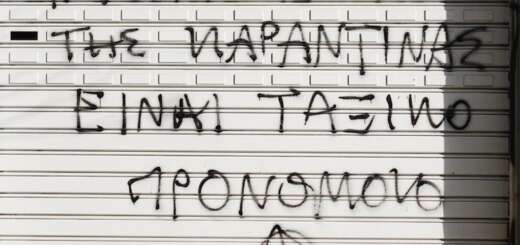 ΤΗΣ ΚΑΡΑΝΤΙΝΑΣ
ΕΙΝΑΙ ΤΑΞΙΚΟ